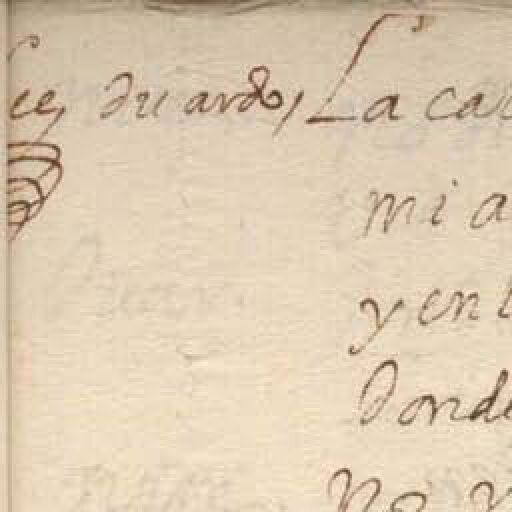 ce, duardo, La ca
mi a
y en l
donde
no v